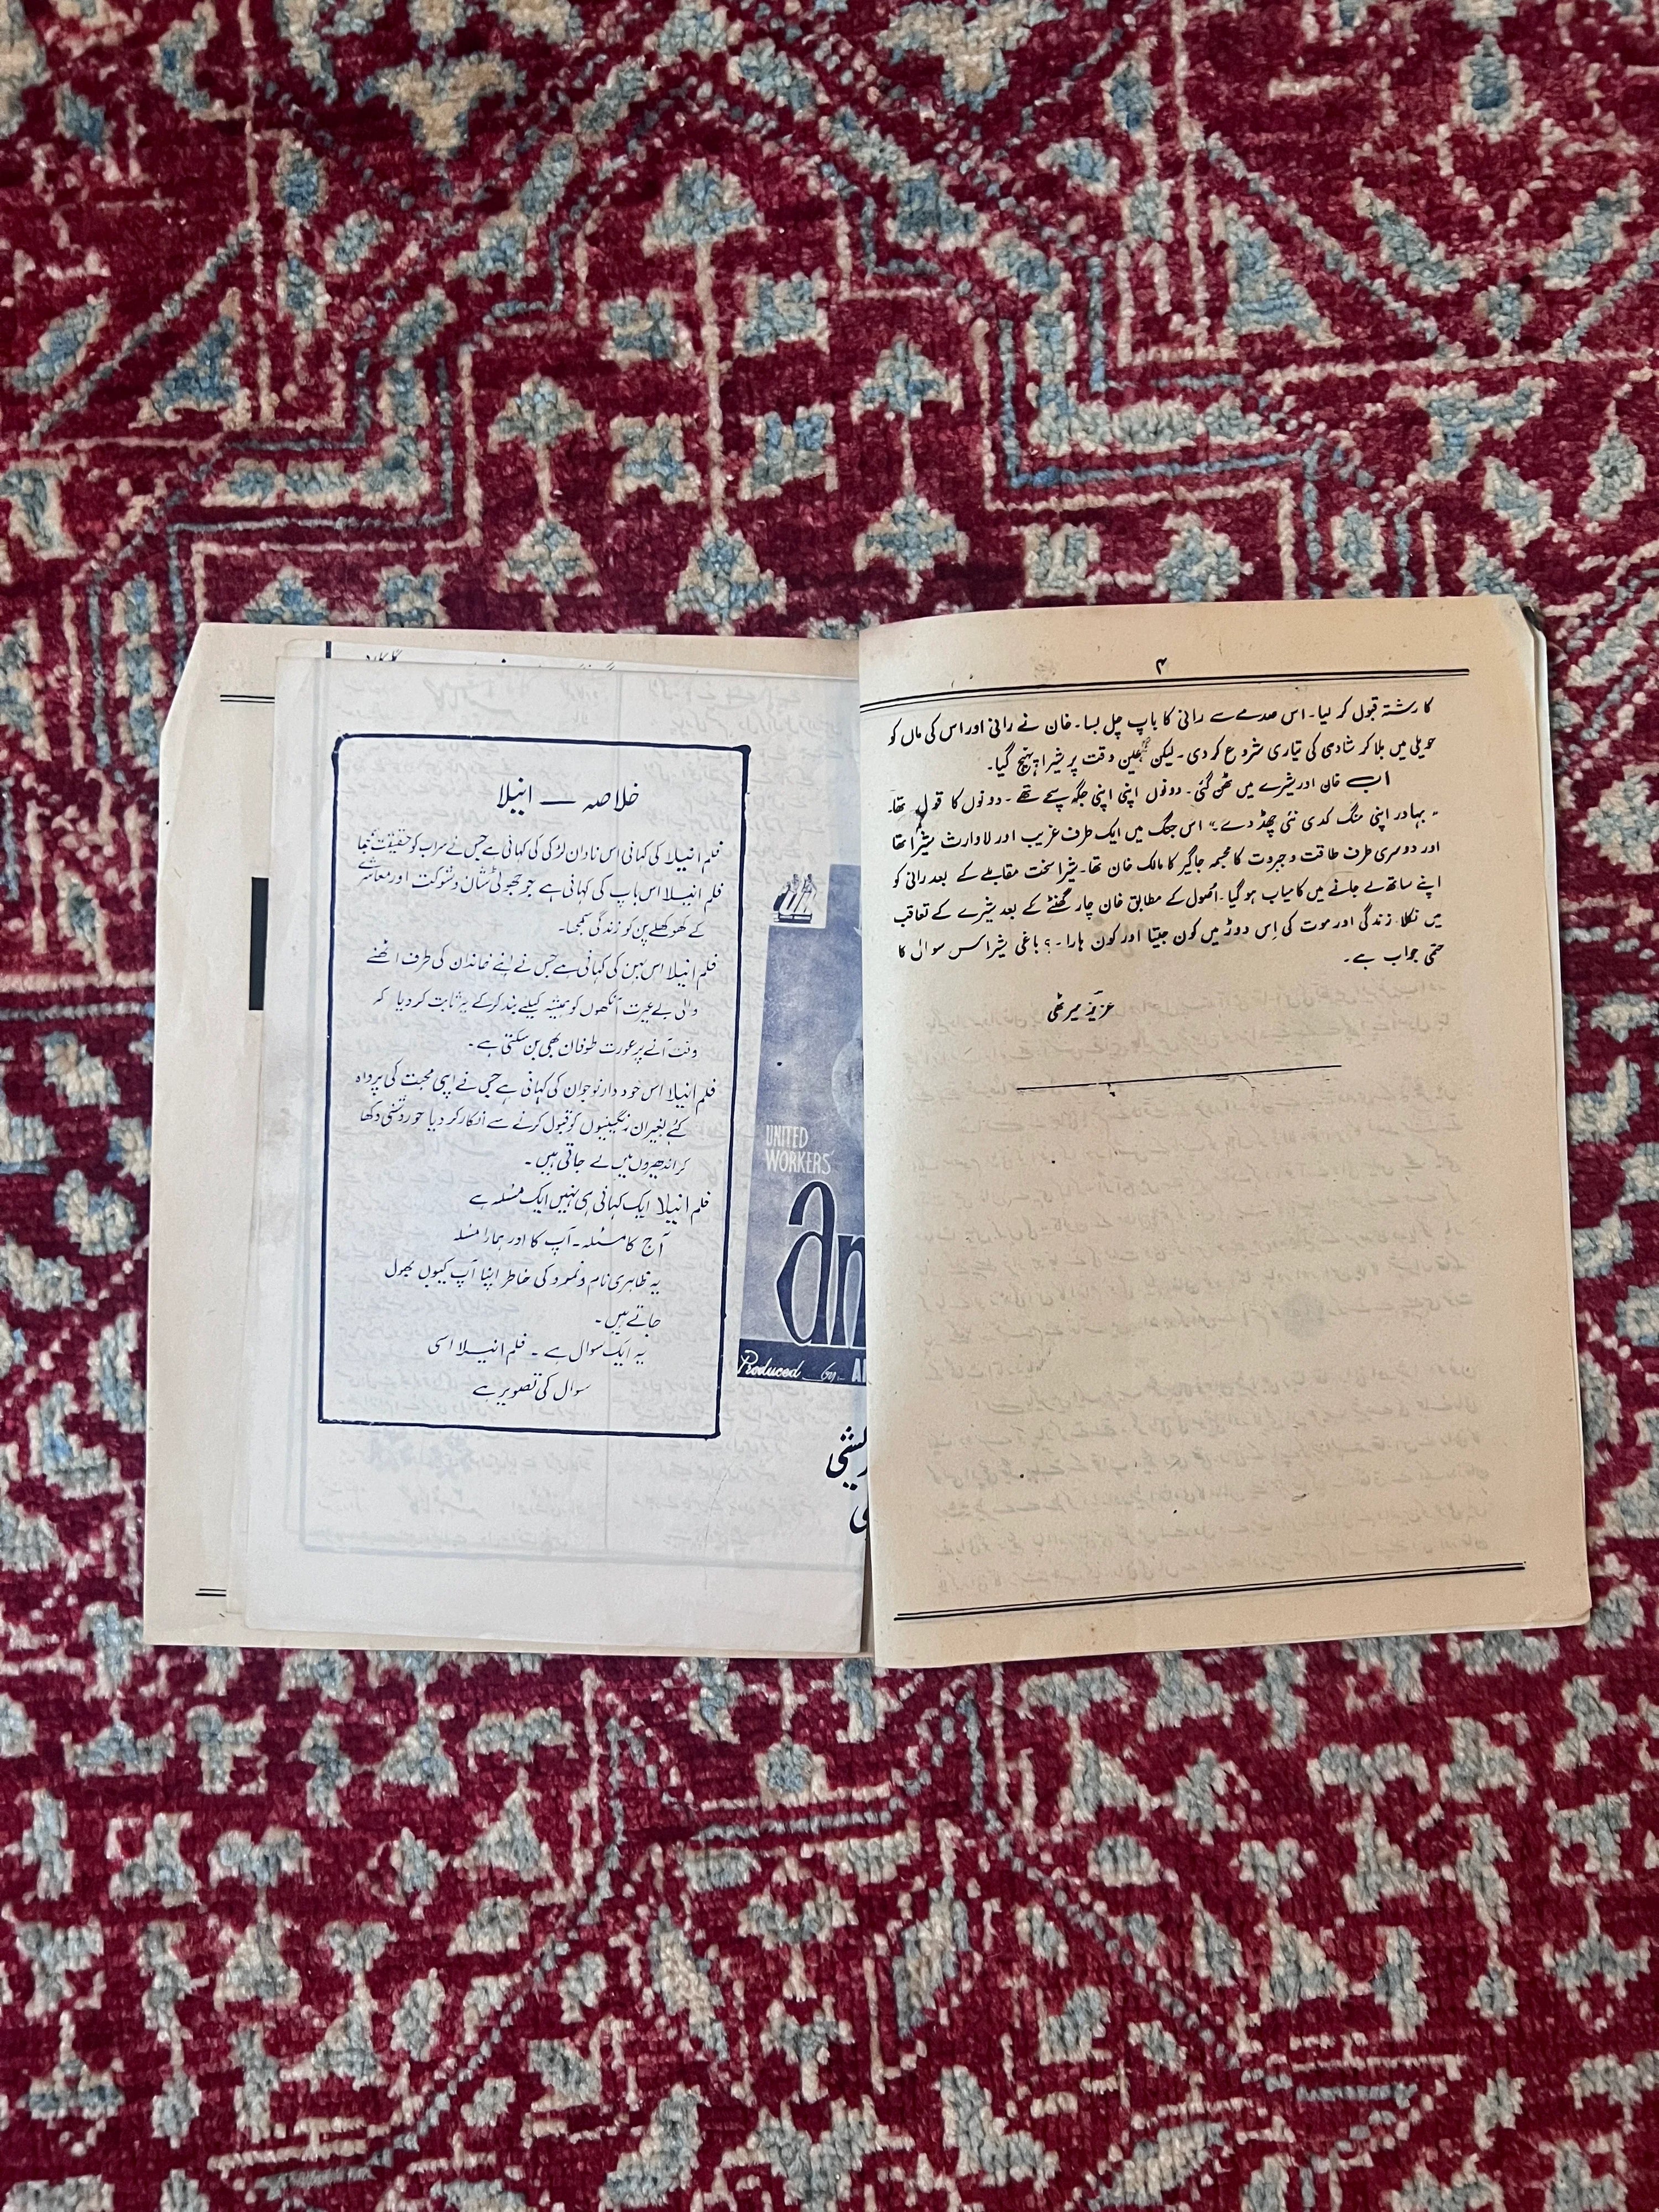 ۴
کا رشتہ قبول کر لیا۔ اس صدمے سے رانی کا باپ چل بسا۔ خان نے رانی اور اس کی ماں کو
حویلی میں بلا کر شادی کی تیاری شروع کر دی۔ لیکن عین وقت پر شیرا پہنچ گیا۔
اب خان اور شیرے میں ٹھن گئی۔ دونوں اپنی اپنی جگہ سچے تھے۔ دونوں کا قول تھا۔
" بہادر اپنی منگ کدی نئی چھڈ دے" اس جنگ میں ایک طرف غریب اور لاوارث شیرا تھا
اور دوسری طرف طاقت و جبروت کا مجسمہ جاگیر کا مالک خان تھا۔ شیرا سخت مقابلے کے بعد رانی کو
اپنے ساتھ لے جانے میں کامیاب ہو گیا۔ اُصول کے مطابق خان چار گھنٹے کے بعد شیرے کے تعاقب
میں نکلا۔ زندگی اور موت کی اِس دوڑ میں کون جیتا اور کون ہارا۔؟ باغی شیرا اس سوال کا
حتمی جواب ہے۔
عزیز میرٹھی
خلاصہ — انیلا
فلم انیلا کی کہانی اس نادان لڑکی کی کہانی ہے جس نے سراب کو حقیقت سمجھا
فلم انیلا اس باپ کی کہانی ہے جو جھوٹی شان و شوکت اور معاشرے
کے کھوکھلے پن کو زندگی سمجھا۔
فلم انیلا اس بہن کی کہانی ہے جس نے اپنے خاندان کی طرف اٹھنے
والی بے غیرت آنکھوں کو ہمیشہ کیلئے بند کر کے یہ ثابت کر دیا کہ
وقت آنے پر عورت طوفان بھی بن سکتی ہے۔
فلم انیلا اس خود دار نوجوان کی کہانی ہے جس نے اپنی محبت کی پرواہ
کئے بغیر ان رنگینیوں کو قبول کرنے سے انکار کر دیا جو روشنی دکھا
کر اندھیروں میں لے جاتی ہیں۔
فلم انیلا ایک کہانی ہی نہیں ایک مسئلہ ہے
آج کا مسئلہ۔ آپ کا اور ہمارا مسئلہ
یہ ظاہری نام و نمود کی خاطر اپنا آپ کیوں بھول
جاتے ہیں۔
یہ ایک سوال ہے۔ فلم انیلا اسی
سوال کی تصویر ہے
UNITED
WORKERS'
an
Produced by:-